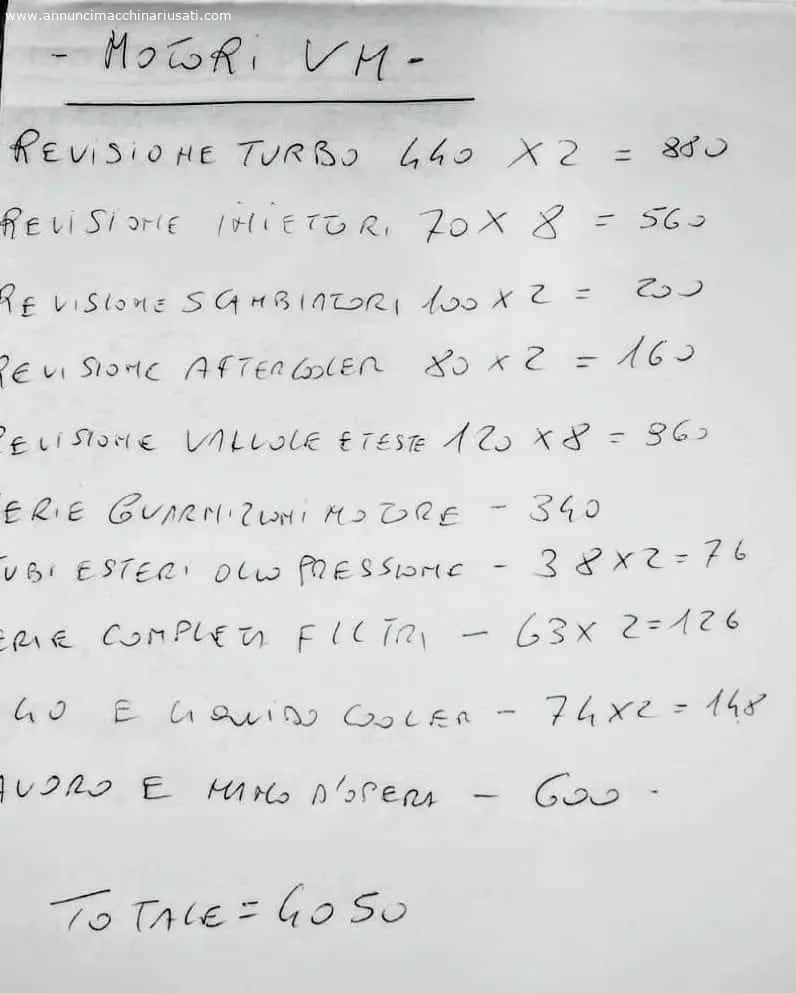 www.annuncimacchinariusati.com
- MOTORI VM -
REVISIONE TURBO 440 X 2 = 880
REVISIONE INIETTORI 70 X 8 = 560
REVISIONE SCAMBIATORI 100 X 2 = 200
REVISIONE AFTERCOOLER 80 X 2 = 160
REVISIONE VALVOLE E TESTE 120 X 8 = 960
ERIE GUARNIZIONI MOTORE - 340
UBI ESTERI OLIO PRESSIONE - 38 X 2 = 76
ERIE COMPLETA FILTRI - 63 X 2 = 126
E LIQUIDO COOLER - 74 X 2 = 148
AVORO E MANO D'OPERA - 600 -
TOTALE = 4050